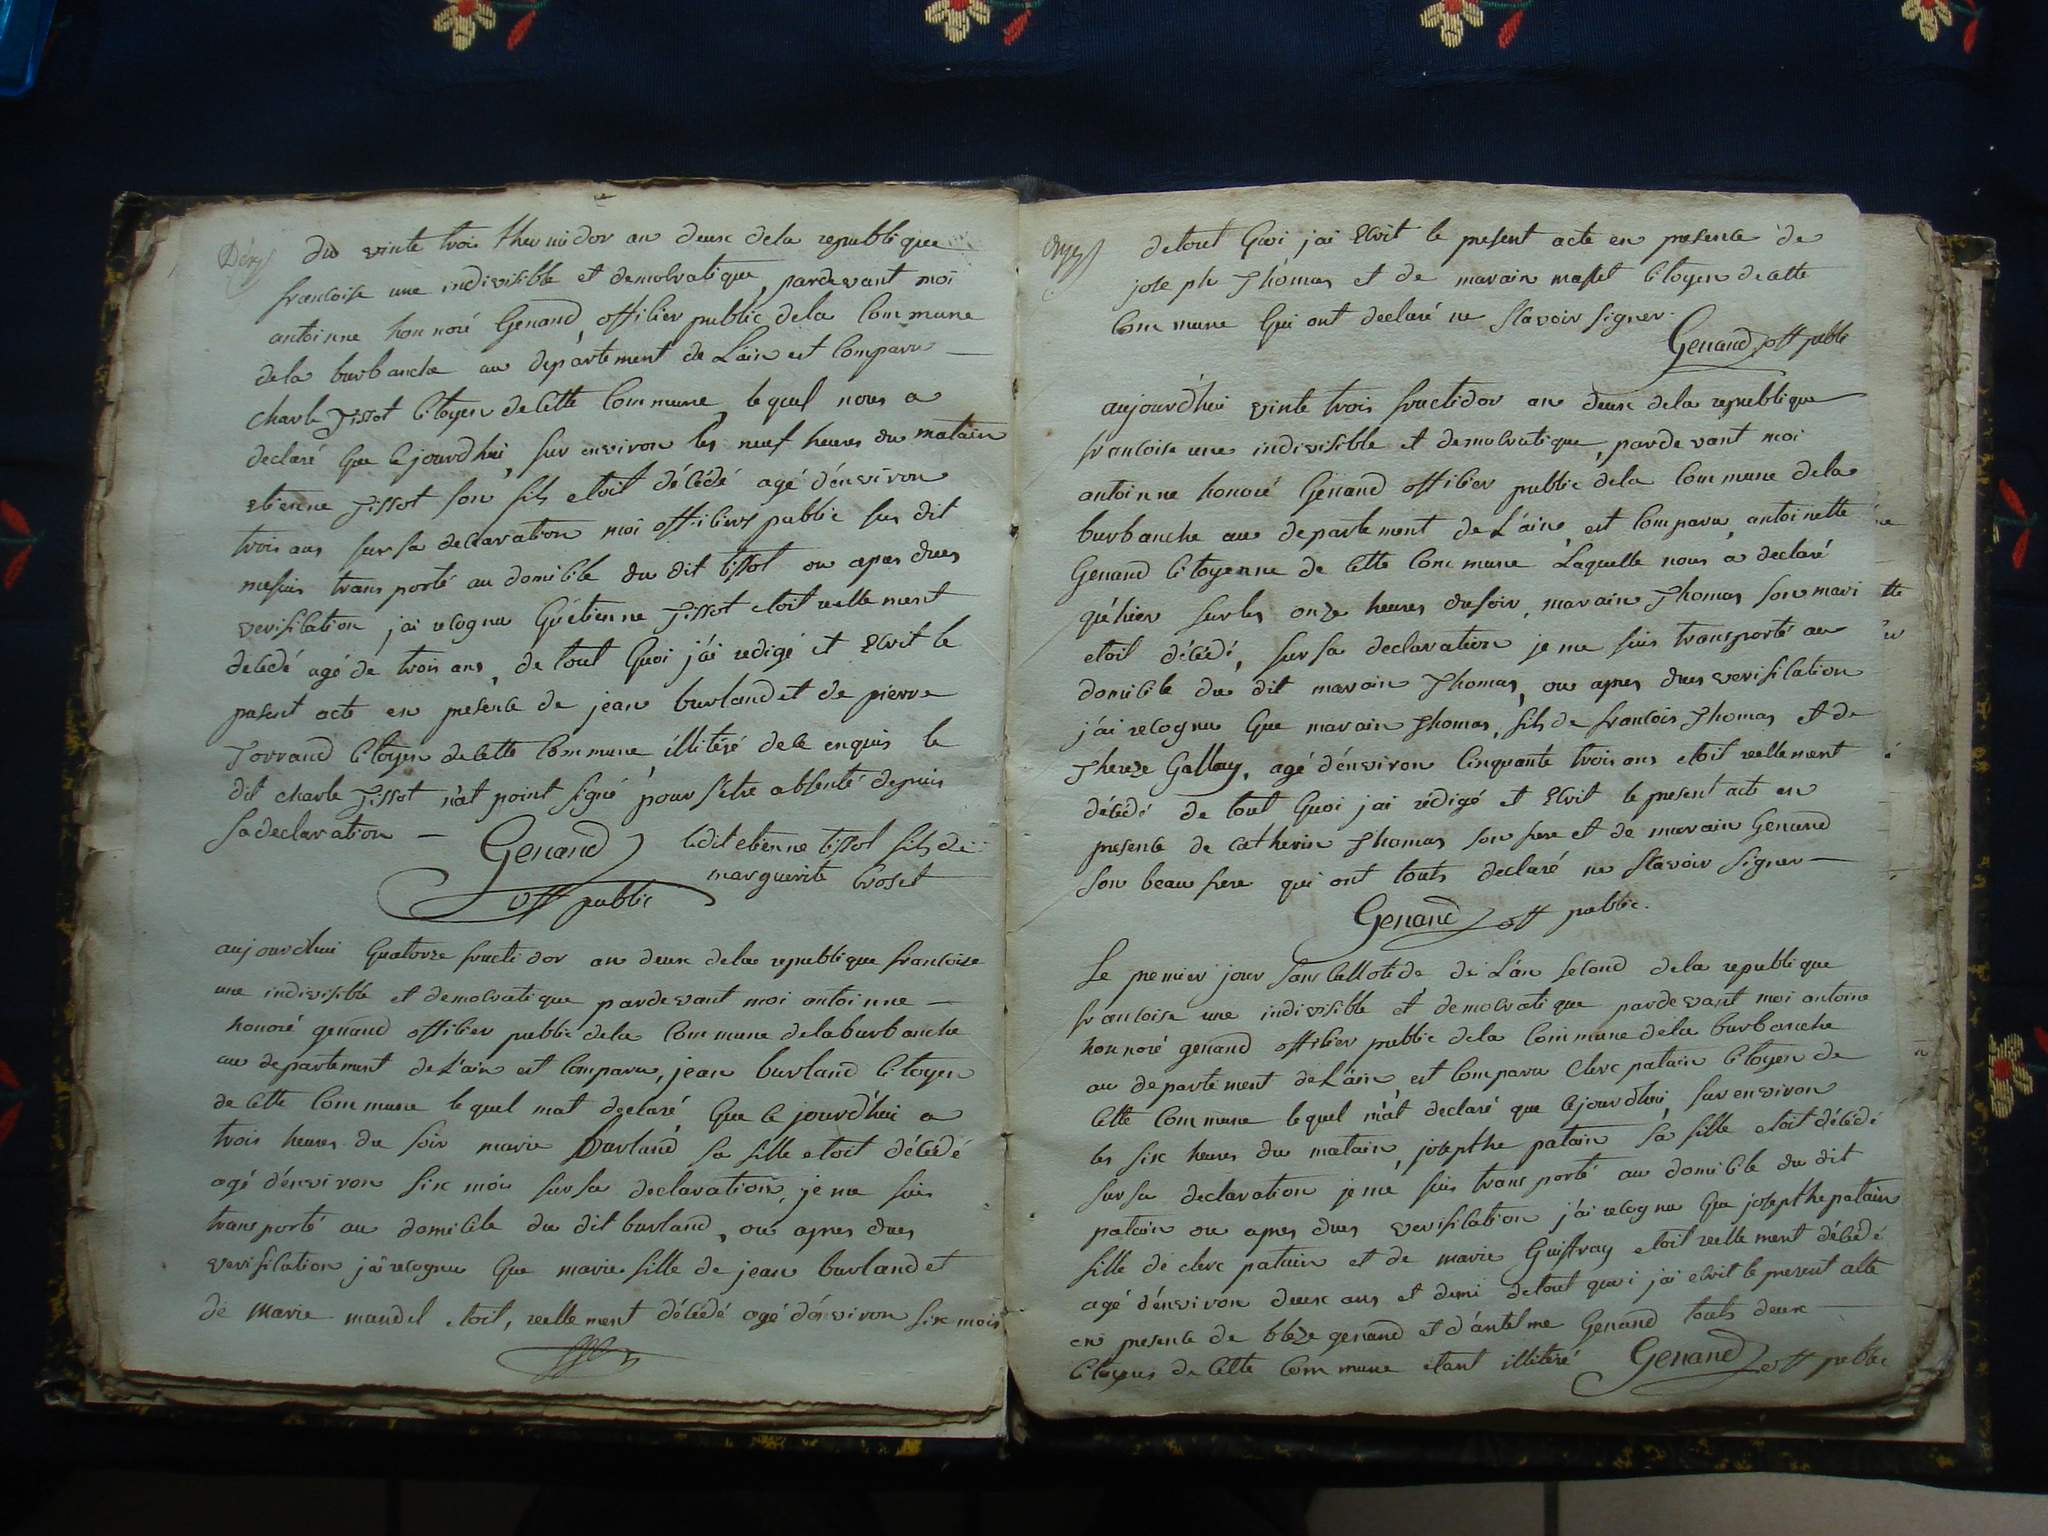 du vinte trois thermidor an deux dela republique
francoise une indivisible et democratique, pardevant moi
antoinne honnoré Genand, officier public dela Commune
dela burbanche au departement de L'ain est Comparu —
Charle Tissot Citoyen de Cette Commune, lequel nous a
declaré que cejourdhui, sur environ les neuf heures du matain
etienne Tissot son fils etoit décédé agé d'environ
trois ans sur sa declaration moi officiers public sus dit
mesuis transporté au domicile du dit tissot ou apres dues
verification, j'ai recognu Qu'etienne Tissot etoit reellement
décédé agé de trois ans, de tout Quoi j'ai redigé et Ecrit le
pasent acte en presence de jean burland et de pierre
Torrand Citoyen de Cette Commune, illitéré de ce enquis le
dit charle Tissot n'at point signé pour s'etre absenté depuis
sa declaration — Genand ledit etienne tissot fils de
off public marguerite broset
aujourdhui Quatorze fructidor an deux dela republique francoise
une indivisible et democratique pardevant moi antoinne —
honoré genand officier public dela Commune delaburbanche
au departement de L'ain est Comparu, jean burland Citoyen
de Cette Commune lequel mat declaré Que Ce jourd'hui a
trois heures du soir marie Burland sa fille etoit décédé
agé d'environ six mois sur sa declaration, je me suis
transporté au domicile du dit burland, ou apres dues
verification j'ai recognu Que marie fille de jean burland et
de marie mandel etoit, reellement décédé agé d'environ six mois
onze
detout Quoi j'ai Ecrit le present acte en presence de
joseph Thomas et de marain masset Citoyen de Cette
Commune Qui ont declaré ne scavoir signer.
Genand off public
aujourd'hui vinte trois fructidor an deux dela republique
francoise une indivisible et democratique, pardevant moi
antoinne honoré Genand officier public dela Commune dela
burbanche au departement de L'ain, est Comparu, antoinette
Genand Citoyenne de Cette Commune Laquelle nous a declaré
qu'hier sur les onze heures du soir, marain Thomas son mari
etoit décédé, sur sa declaration je me suis transporté au
domicile du dit marain Thomas, ou apres dues verification
j'ai recognu Que marain Thomas, fils de francois Thomas et de
Thereze Gallay, agé d'environ Cinquante trois ans etoit reellement
décédé de tout Quoi j'ai rédigé et Ecrit le present acte en
presence de Catherin Thomas son frere et de marain Genand
son beau frere qui ont touts declaré ne scavoir signer —
Genand off public.
Le premier jour sans Cullotide de L'an second dela republique
francoise une indivisible et democratique pardevant moi antoine
honnoré genand officier public dela Commune dela burbanche
au departement deL'ain, est Comparu Clerc patain Citoyen de
Cette Commune lequel m'at declaré que Cejourdhui, sur environ
les six heures du matain, josepthe patain sa fille etoit décédé
sur sa declaration je me suis transporté au domicile du dit
patain ou apres dues verification j'ai recognu Que josepthe patain
fille de clerc patain et de marie Guiffray etoit reellement décédé
agé d'environ deux ans et demi detout quoi j'ai ecrit le present acte
en presence de blèze genand et d'antelme Genand touts deux —
Citoyens de Cette Commune etant illiteré Genand off public